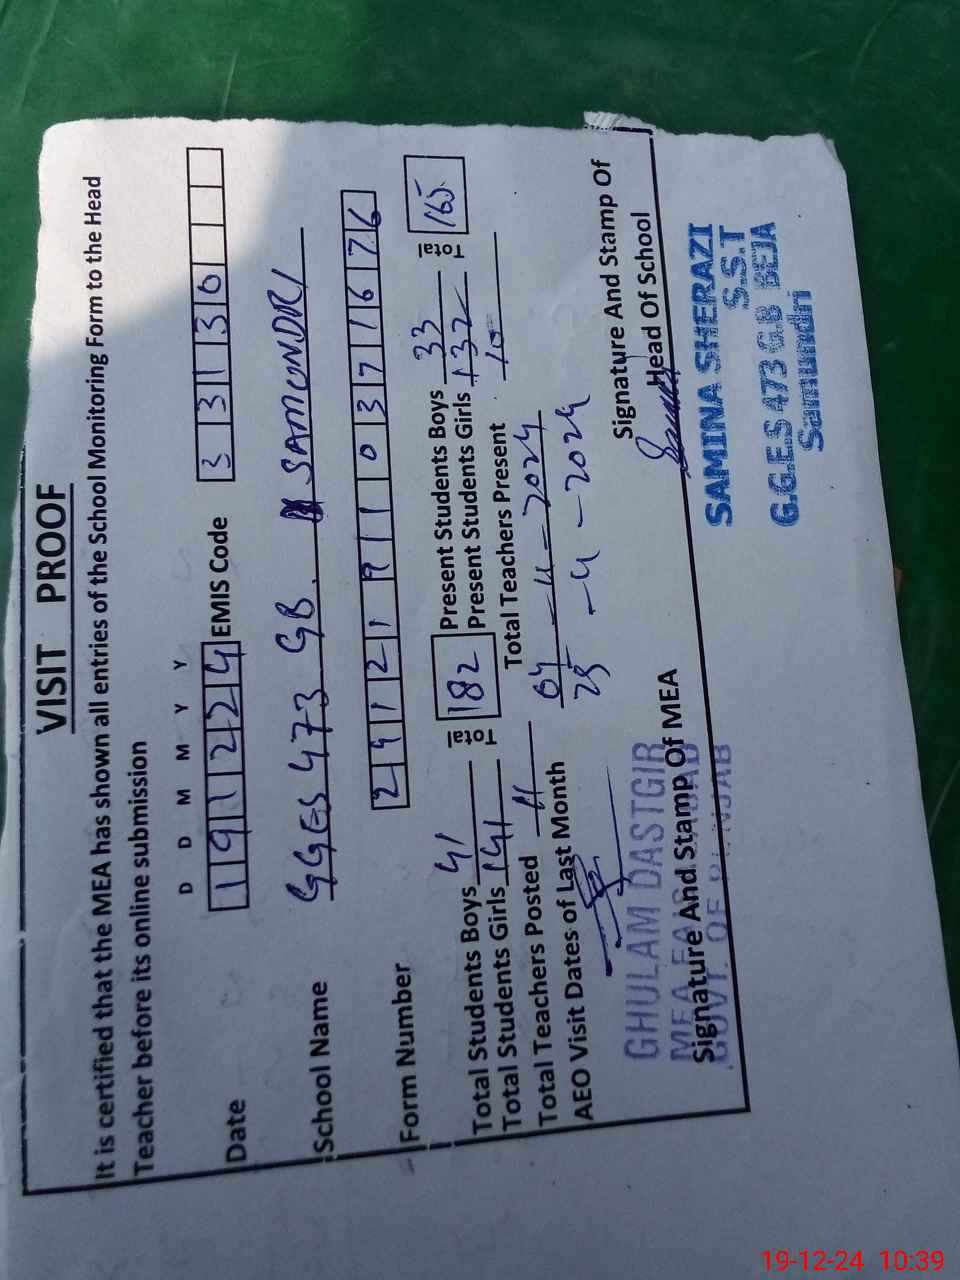 VISIT PROOF
It is certified that the MEA has shown all entries of the School Monitoring Form to the Head
Teacher before its online submission
D D M M Y Y
Date 191224 EMIS Code 33130
School Name GGES 473 GB. SAMUNDRI
Form Number
Total Students Boys 41 Total 182 Present Students Boys 33 Total 165
Total Students Girls 141 Present Students Girls 132
Total Teachers Posted 11 Total Teachers Present 10
AEO Visit Dates of Last Month 04-11-2024
25-11-2024
Signature And Stamp Of
Head Of School
GHULAM DASTGIR
MEA FAISALABAD
GOVT. OF PUNJAB
Signature And Stamp Of MEA
SAMINA SHERAZI
S.S.T
G.G.E.S 473 G.B BEJA
Samundri
19-12-24 10:39